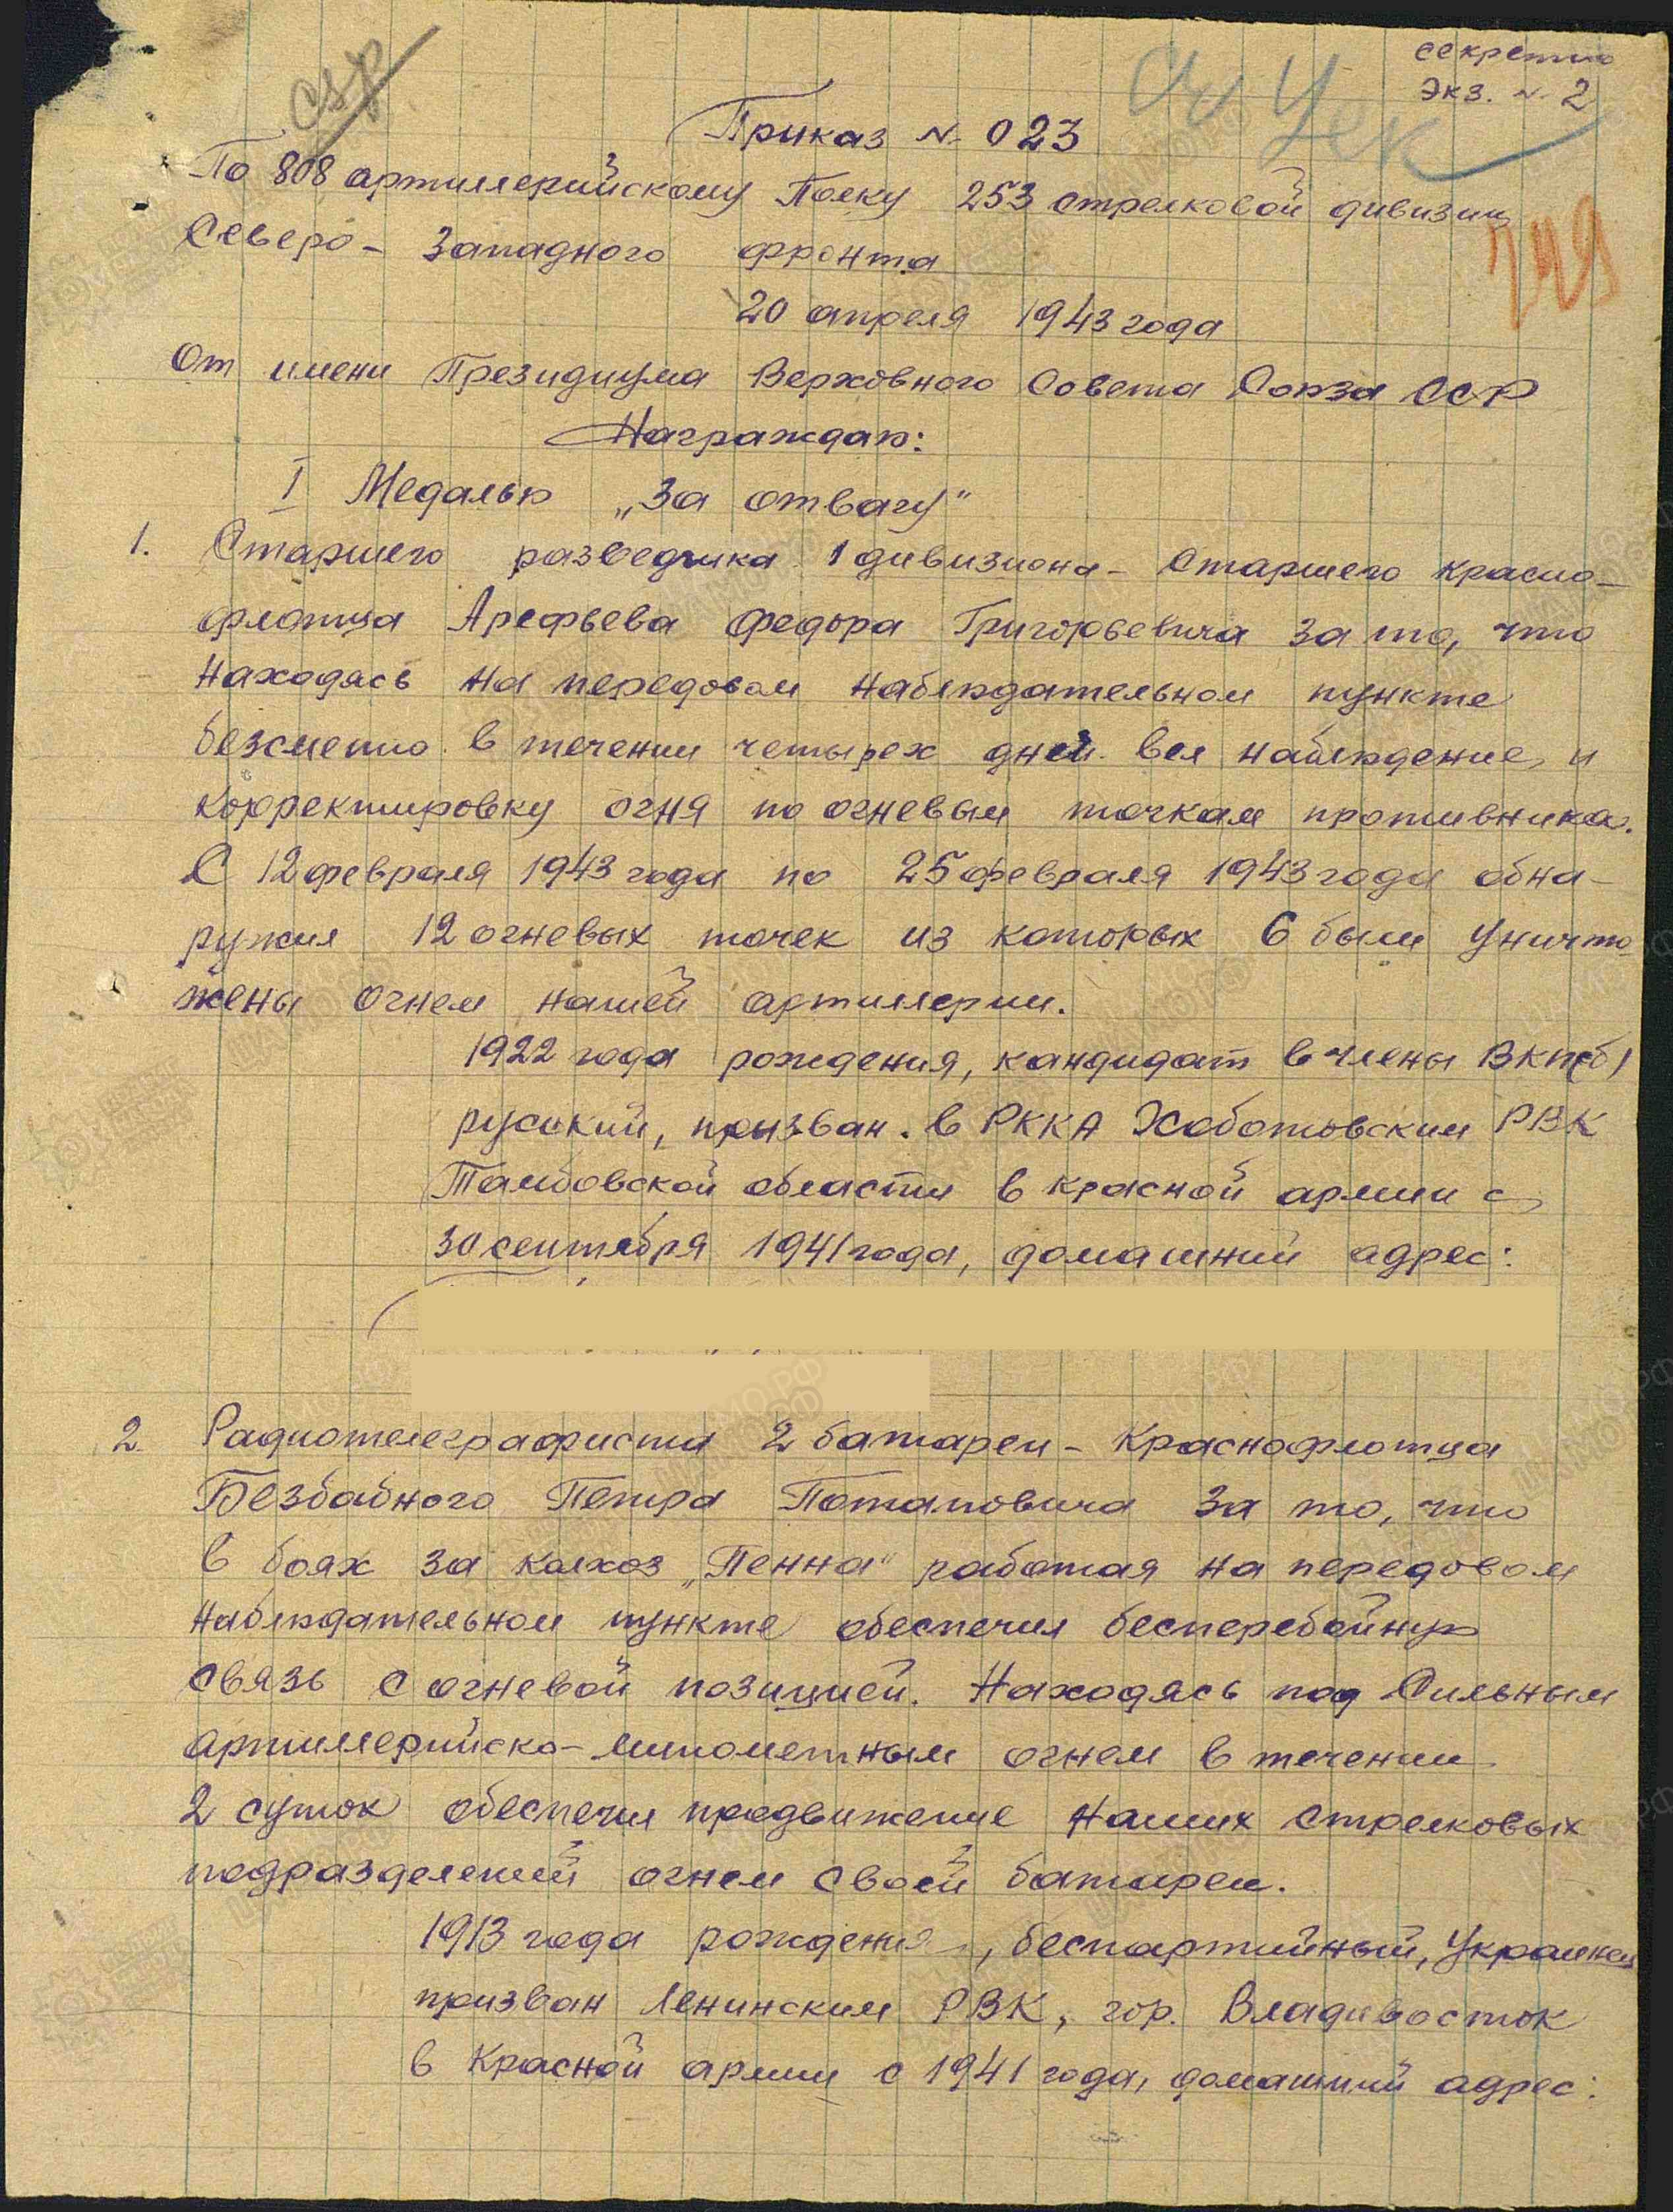 секретно
Экз. № 2
Приказ № 023
По 808 артиллерийскому Полку 253 стрелковой дивизии
Северо - Западного фронта
20 апреля 1943 года
От имени Президиума Верховного Совета Союза ССР
Награждаю:
I Медалью „За отвагу"
1. Старшего разведчика 1 дивизиона - Старшего красно-
флотца Арефьева Федора Григорьевича за то, что
Находясь на передовом наблюдательном пункте
безсменно в течении четырех дней вел наблюдение и
корректировку огня по огневым точкам противника.
С 12 февраля 1943 года по 25 февраля 1943 года обна-
ружил 12 огневых точек из которых 6 были уничто-
жены огнем нашей артиллерии.
1922 года рождения, кандидат в члены ВКП(б)
русский, призван в РККА Хоботовским РВК
Тамбовской области в красной армии с
30 сентября 1941 года, домашний адрес:
2. Радиотелеграфиста 2 батареи - Краснофлотца
Безбабного Петра Потаповича за то, что
в боях за колхоз „Пенна" работая на передовом
наблюдательном пункте обеспечил бесперебойную
связь с огневой позицией. Находясь под Сильным
артиллерийско-минометным огнем в течении
2 суток обеспечил продвижение наших стрелковых
подразделений огнем своей батареи.
1913 года рождения, беспартийный, Украинец
призван Ленинским РВК, гор. Владивосток
в Красной армии с 1941 года, домашний адрес: